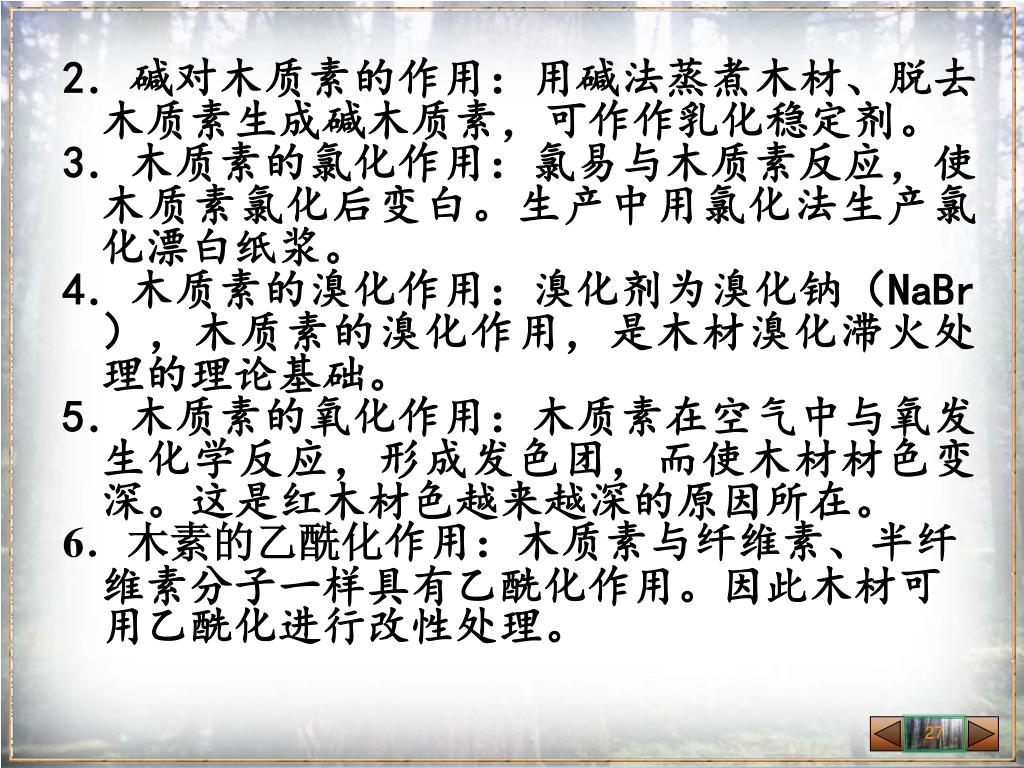 2．碱对木质素的作用：用碱法蒸煮木材、脱去
木质素生成碱木质素，可作作乳化稳定剂。
3．木质素的氯化作用：氯易与木质素反应，使
木质素氯化后变白。生产中用氯化法生产氯
化漂白纸浆。
4．木质素的溴化作用：溴化剂为溴化钠（NaBr
），木质素的溴化作用，是木材溴化滞火处
理的理论基础。
5．木质素的氧化作用：木质素在空气中与氧发
生化学反应，形成发色团，而使木材材色变
深。这是红木材色越来越深的原因所在。
6．木素的乙酰化作用：木质素与纤维素、半纤
维素分子一样具有乙酰化作用。因此木材可
用乙酰化进行改性处理。
27